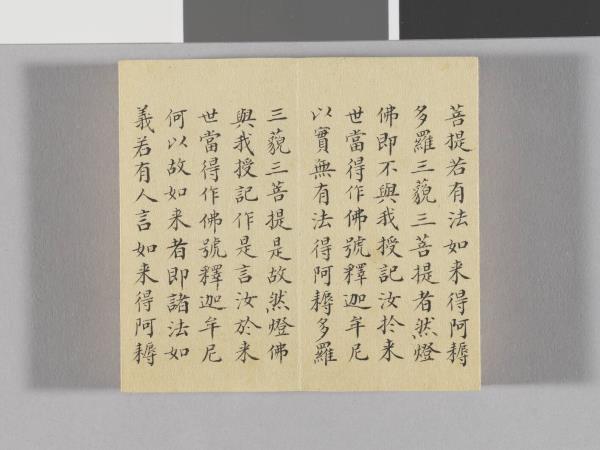 菩提若有法如来得阿耨
多羅三藐三菩提者然燈
佛即不與我授記汝扵来
世當得作佛號釋迦牟尼
以實無有法得阿耨多羅
三藐三菩提是故然燈佛
與我授記作是言汝扵来
世當得作佛號釋迦牟尼
何以故如来者即諸法如
義若有人言如来得阿耨